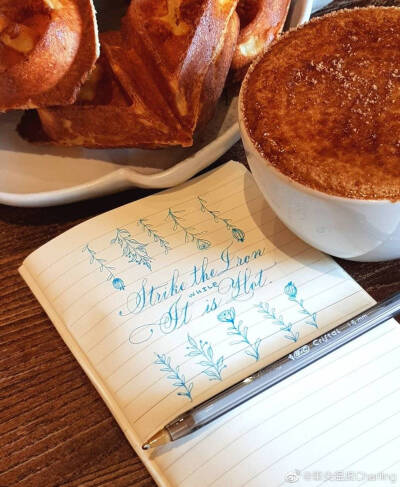 Strike the Iron
WHILE
It is Hot.
BIC Cristal
Charling